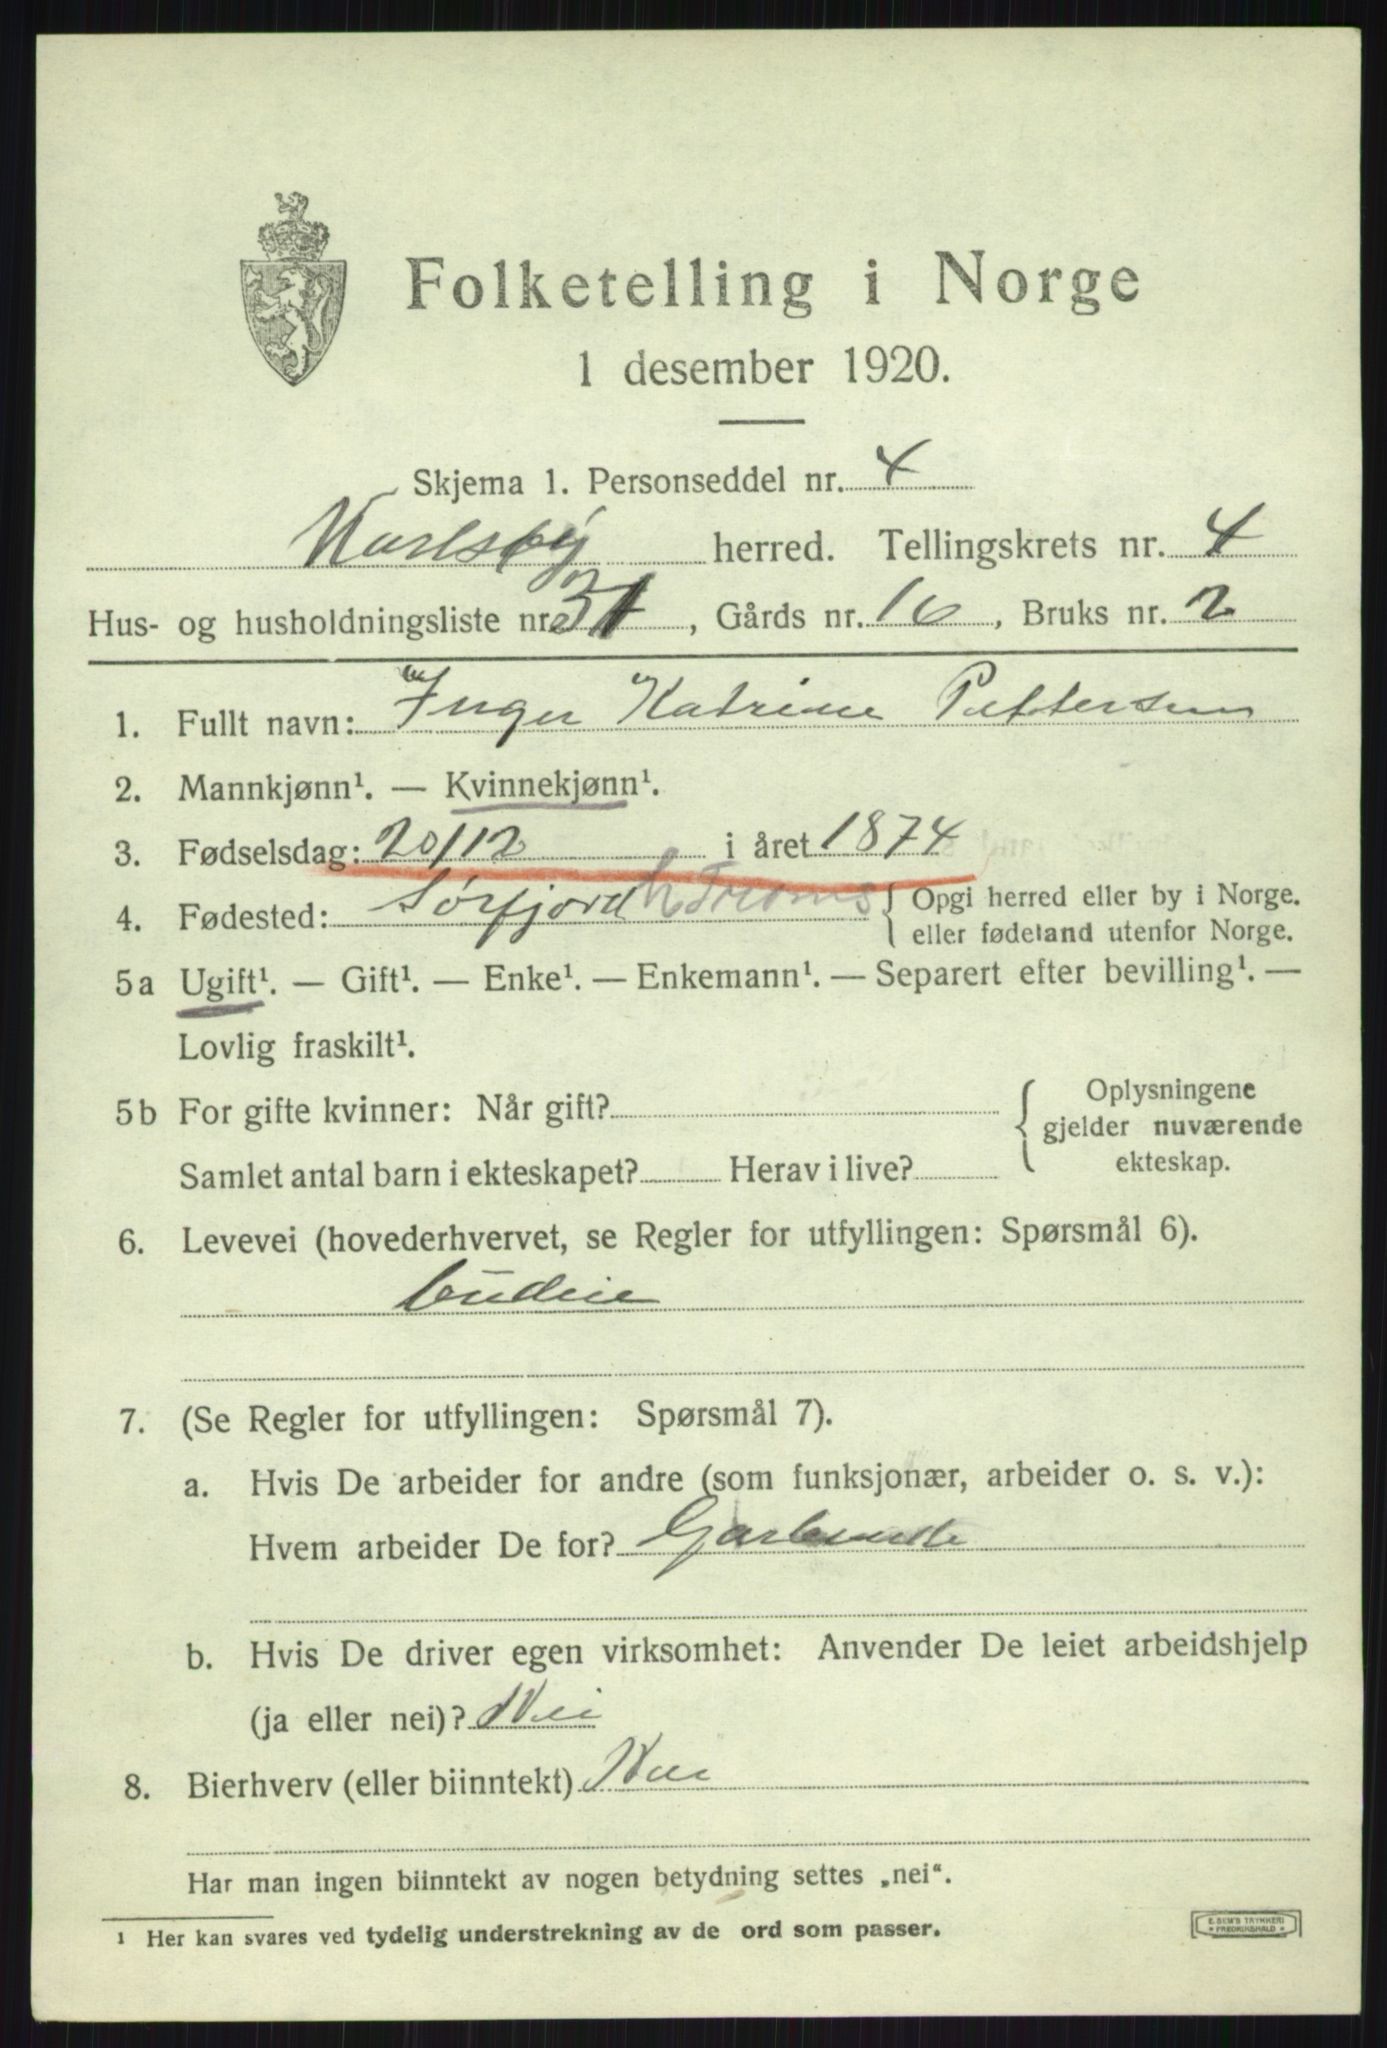 Folketelling i Norge
1 desember 1920.
Skjema 1. Personseddel nr. 4
Karlsøy herred. Tellingskrets nr. 4
Hus- og husholdningsliste nr. 31, Gårds nr. 16, Bruks nr. 2
1. Fullt navn: Inger Katrine Pettersen
2. Mannkjønn¹. — Kvinnekjønn¹.
3. Fødselsdag: 20/12 i året 1874
4. Fødested: Sørfjord Troms { Opgi herred eller by i Norge.
eller fødeland utenfor Norge.
5a Ugift¹. — Gift¹. — Enke¹. — Enkemann¹. — Separert efter bevilling¹. —
Lovlig fraskilt¹.
5b For gifte kvinner: Når gift? { Oplysningene
gjelder nuværende
ekteskap.
Samlet antal barn i ekteskapet? Herav i live?
6. Levevei (hovederhvervet, se Regler for utfyllingen: Spørsmål 6).
budeie
7. (Se Regler for utfyllingen: Spørsmål 7).
a. Hvis De arbeider for andre (som funksjonær, arbeider o. s. v.):
Hvem arbeider De for? Garbruk
b. Hvis De driver egen virksomhet: Anvender De leiet arbeidshjelp
(ja eller nei)? Nei
8. Bierhverv (eller biinntekt) Nei
Har man ingen biinntekt av nogen betydning settes „nei“.
¹ Her kan svares ved tydelig understrekning av de ord som passer.
E. SEM'S TRYKKERI
FREDRIKSHALD